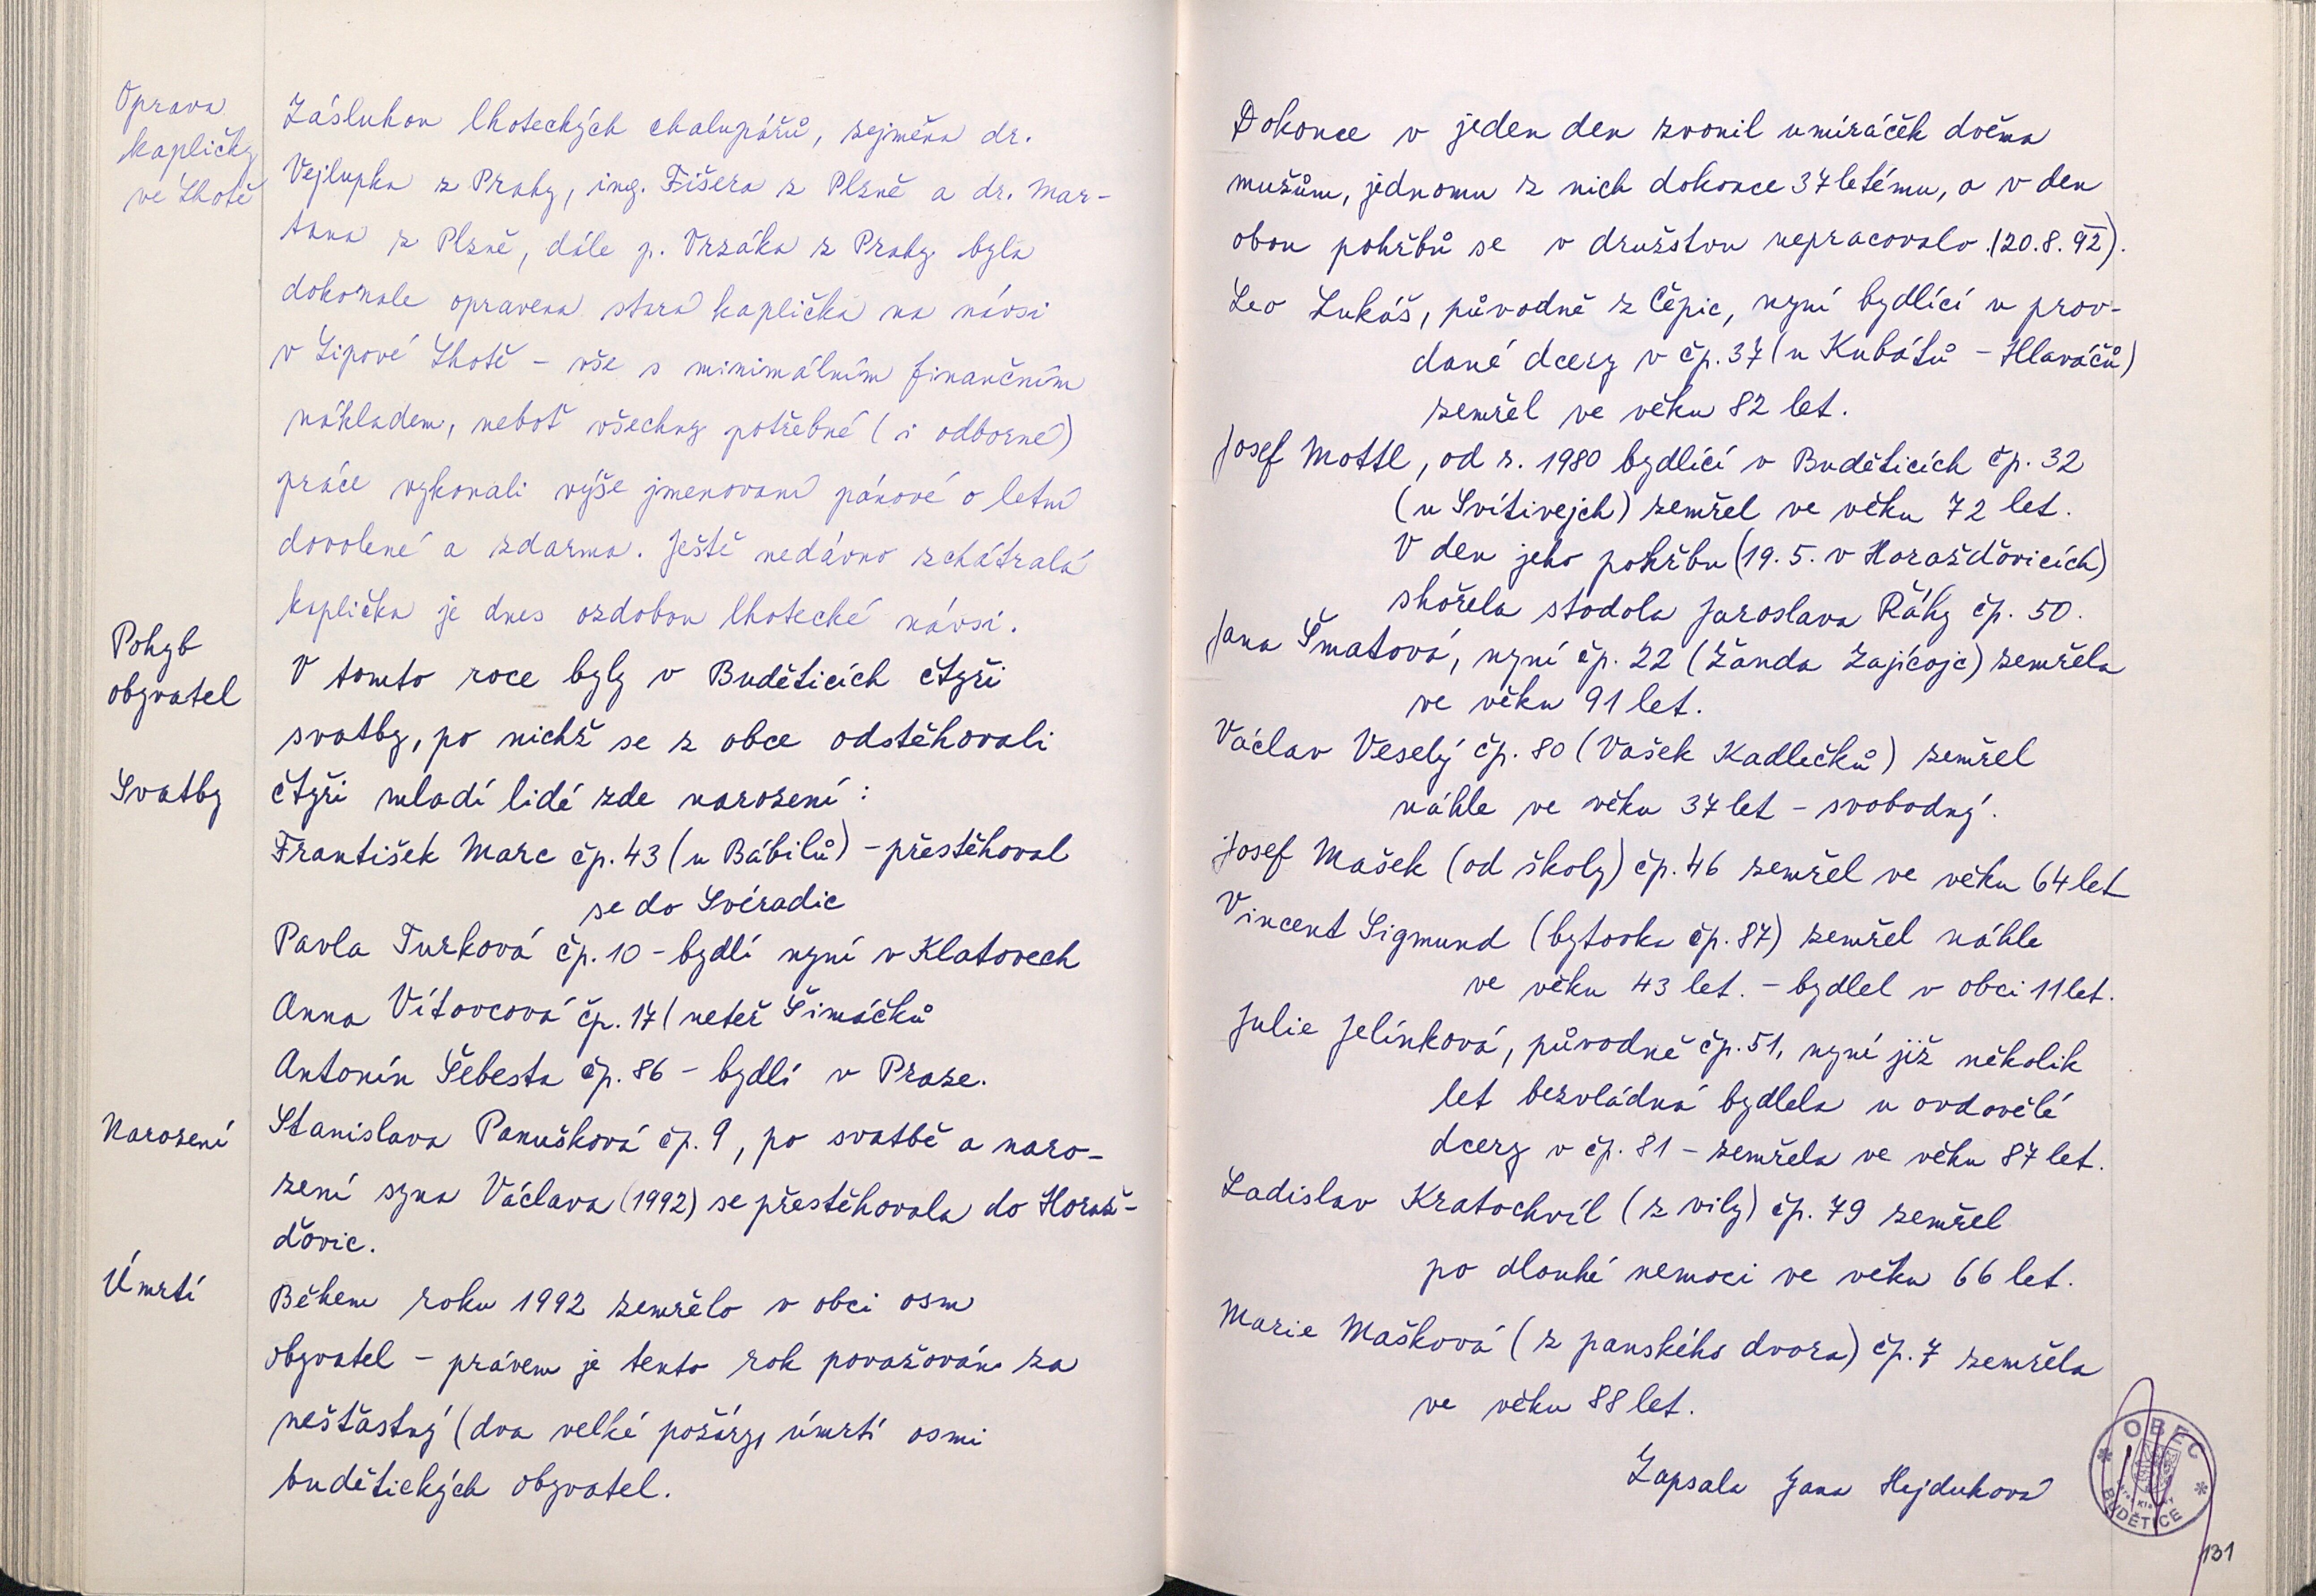 Oprava
kapličky
ve Lhotě
Zásluhou lhoteckých chalupářů, zejména dr.
Vejlupka z Prahy, ing. Fišera z Plzně a dr. Mar-
tana z Plzně, dále p. Vrzáka z Prahy byla
dokonale opravena stará kaplička na návsi
v Lipové Lhotě - vše s minimálním finančním
nákladem, neboť všechny potřebné (i odborné)
práce vykonali výše jmenovaní pánové o letní
dovolené a zdarma. Ještě nedávno zchátralá
kaplička je dnes ozdobou lhotecké návsi.
Pohyb
obyvatel
V tomto roce byly v Buděticích čtyři
svatby, po nichž se z obce odstěhovali
Svatby
čtyři mladí lidé zde narození:
František Marc čp. 43 (u Bábilů) - přestěhoval
se do Svéradic
Pavla Turková čp. 10 - bydlí nyní v Klatovech
Anna Vítovcová čp. 17 (neteř Šimáčků
Antonín Šebesta čp. 86 - bydlí v Praze.
Narození
Stanislava Panušková čp. 9, po svatbě a naro-
zení syna Václava (1992) se přestěhovala do Horaž-
ďovic.
Úmrtí
Během roku 1992 zemřelo v obci osm
obyvatel - právem je tento rok považován za
nešťastný (dva velké požáry, úmrtí osmi
budětických obyvatel.
Dokonce v jeden den zvonil umíráček dvěma
mužům, jednomu z nich dokonce 37letému, a v den
obou pohřbů se v družstvu nepracovalo. (20.8.92).
Leo Lukáš, původně z Čepic, nyní bydlící u prov-
dané dcery v čp. 37 (u Kubátů - Hlaváčů)
zemřel ve věku 82 let.
Josef Mottl, od r. 1980 bydlící v Buděticích čp. 32
(u Svítivejch) zemřel ve věku 72 let.
V den jeho pohřbu (19.5. v Horažďovicích)
shořela stodola Jaroslava Ráhy čp. 50.
Jana Šmatová, nyní čp. 22 (Žanda Zajícojc) zemřela
ve věku 91 let.
Václav Veselý čp. 80 (Vašek Kadlečků) zemřel
náhle ve věku 37 let - svobodný.
Josef Mašek (od školy) čp. 46 zemřel ve věku 64 let
Vincent Sigmund (bytovka čp. 87) zemřel náhle
ve věku 43 let. - bydlel v obci 11 let.
Julie Jelínková, původně čp. 51, nyní již několik
let bezvládná bydlela u ovdovělé
dcery v čp. 81 - zemřela ve věku 87 let.
Ladislav Kratochvíl (z vily) čp. 79 zemřel
po dlouhé nemoci ve věku 66 let.
Marie Mašková (z panského dvora) čp. 7 zemřela
ve věku 88 let.
Zapsala Jana Hejduková
OBEC
BUDĚTICE
131